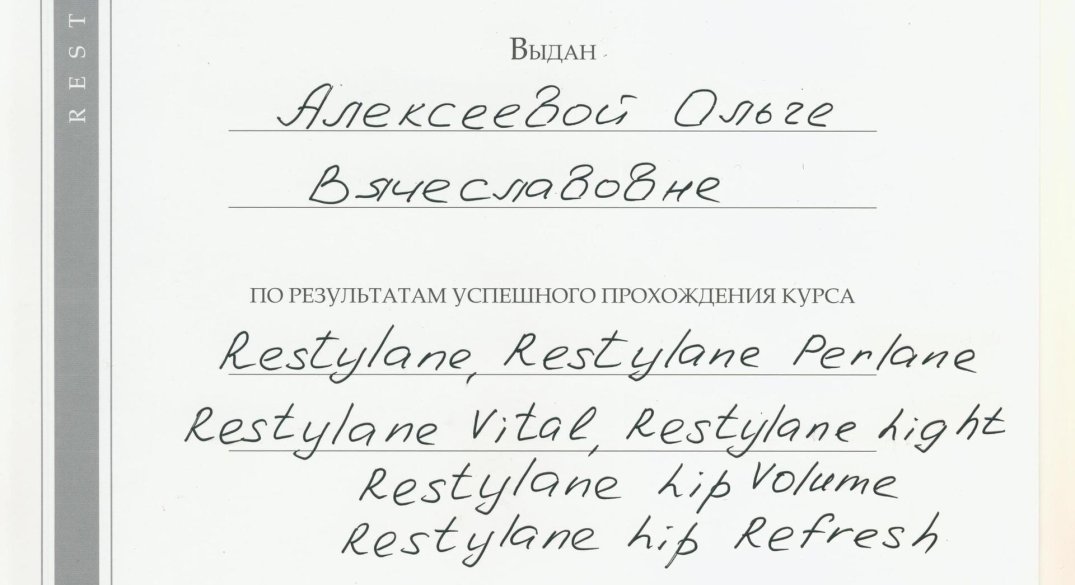 REST
Выдан
Алексеевой Ольге
Вячеславовне
ПО РЕЗУЛЬТАТАМ УСПЕШНОГО ПРОХОЖДЕНИЯ КУРСА
Restylane, Restylane Perlane
Restylane Vital, Restylane Light
Restylane Lip Volume
Restylane Lip Refresh